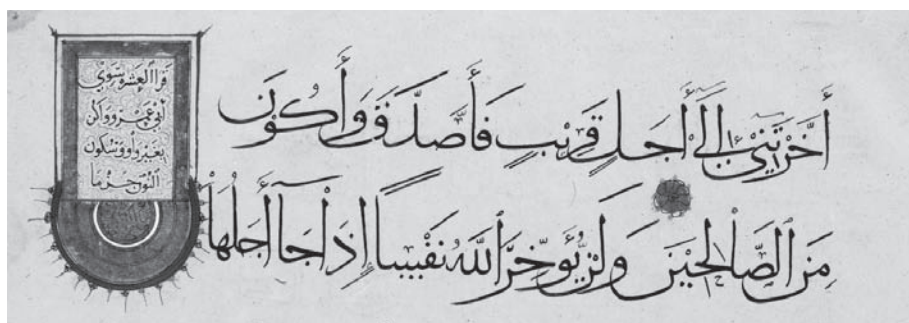 أَخَّرْتَنِي إِلَىٰ أَجَلٍ قَرِيبٍ فَأَصَّدَّقَ وَأَكُونَ
مِنَ ٱلصَّالِحِينَ وَلَنْ يُؤَخِّرَ ٱللَّهُ نَفْسًا إِذَا جَآءَ أَجَلُهَا
قرا العشره سوي
أبي عمرو وأكن
بغير واو وسكون
النون جزما